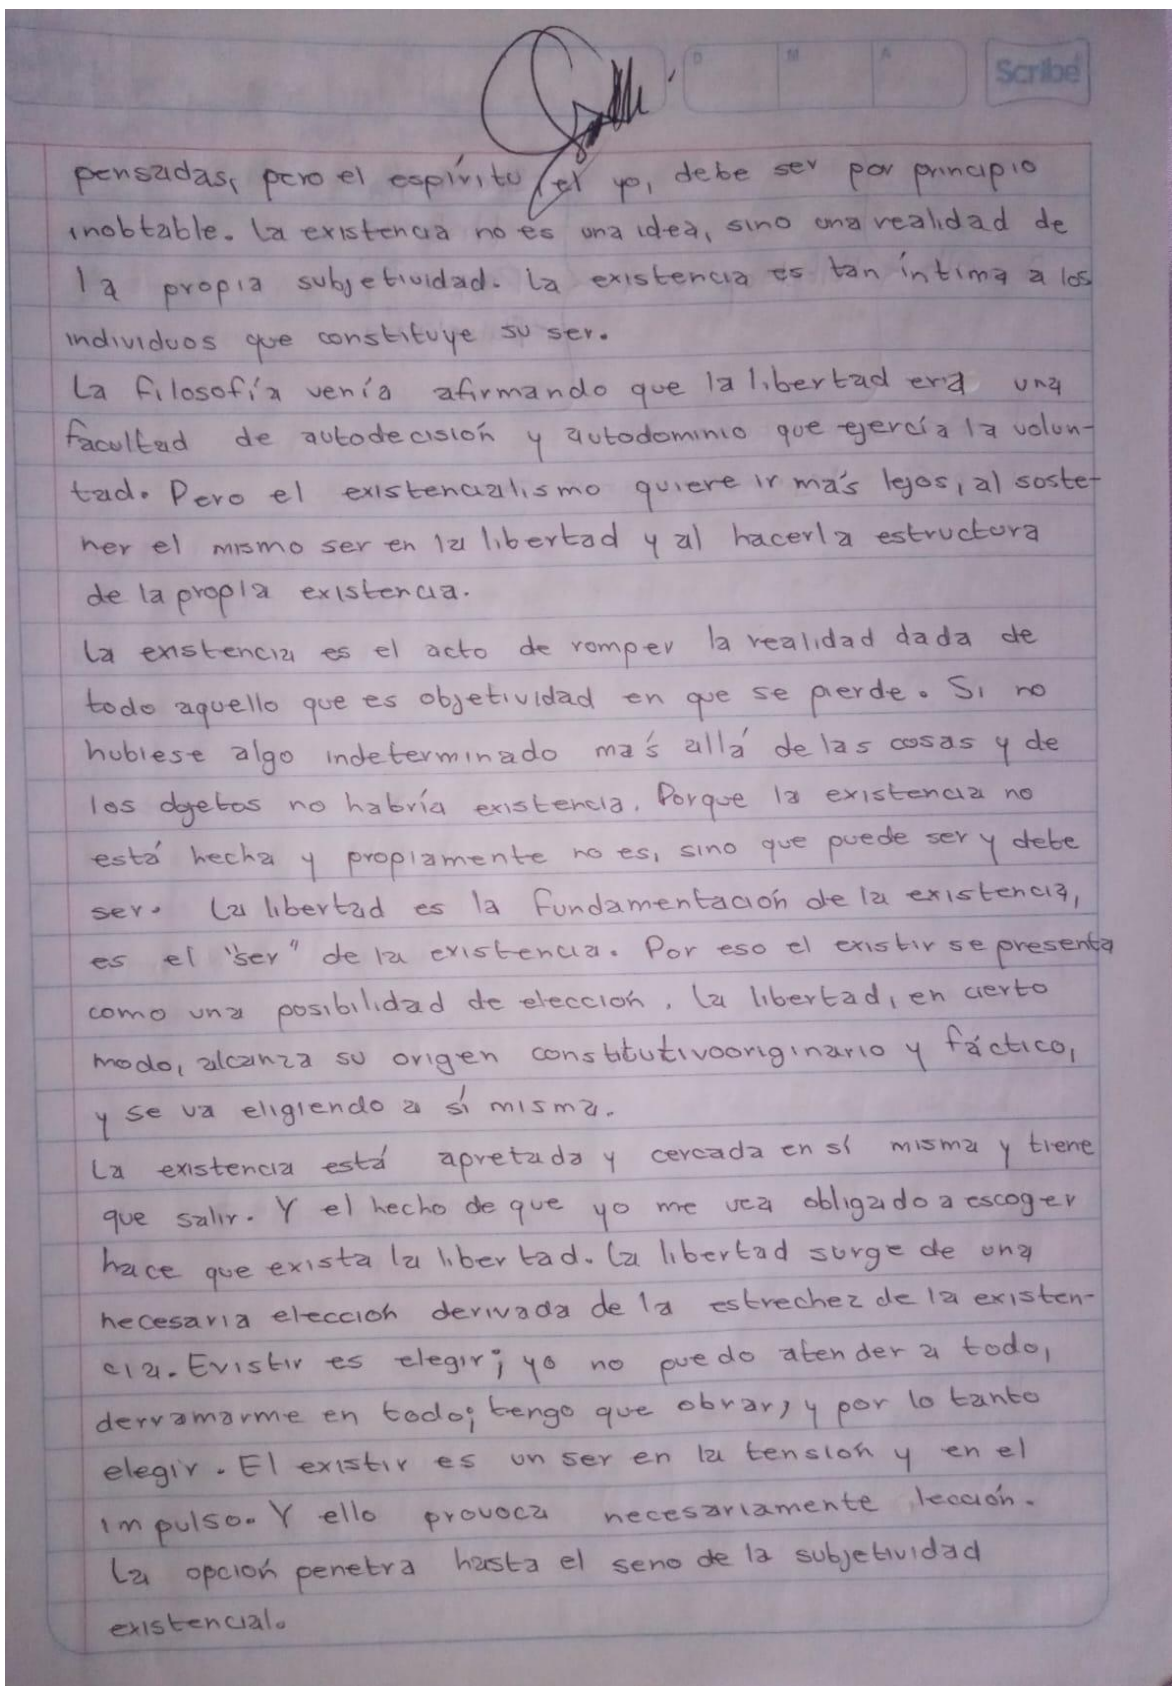 D M A Scribe
pensadas, pero el espíritu, el yo, debe ser por principio
inobtable. La existencia no es una idea, sino una realidad de
la propia subjetividad. La existencia es tan íntima a los
individuos que constituye su ser.
La filosofía venía afirmando que la libertad era una
facultad de autodecisión y autodominio que ejercía la volun-
tad. Pero el existencialismo quiere ir más lejos, al soste-
ner el mismo ser en la libertad y al hacerla estructura
de la propia existencia.
La existencia es el acto de romper la realidad dada de
todo aquello que es objetividad en que se pierde. Si no
hubiese algo indeterminado más allá de las cosas y de
los objetos no habría existencia. Porque la existencia no
está hecha y propiamente no es, sino que puede ser y debe
ser. La libertad es la fundamentación de la existencia,
es el "ser" de la existencia. Por eso el existir se presenta
como una posibilidad de elección. La libertad, en cierto
modo, alcanza su origen constitutivooriginario y fáctico,
y se va eligiendo a sí misma.
La existencia está apretada y cercada en sí misma y tiene
que salir. Y el hecho de que yo me vea obligado a escoger
hace que exista la libertad. La libertad surge de una
necesaria elección derivada de la estrechez de la existen-
cia. Existir es elegir; yo no puedo atender a todo,
derramarme en todo; tengo que obrar, y por lo tanto
elegir. El existir es un ser en la tensión y en el
impulso. Y ello provoca necesariamente lección.
La opción penetra hasta el seno de la subjetividad
existencial.